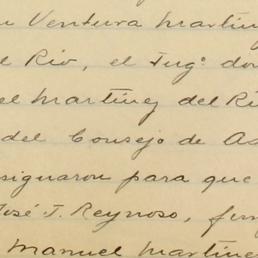 Ventura Martín
el Río, el Ingº. don
el Martínez del Rí
del Consejo de As
signaron para que
José J. Reynoso, fun
Manuel Martíne